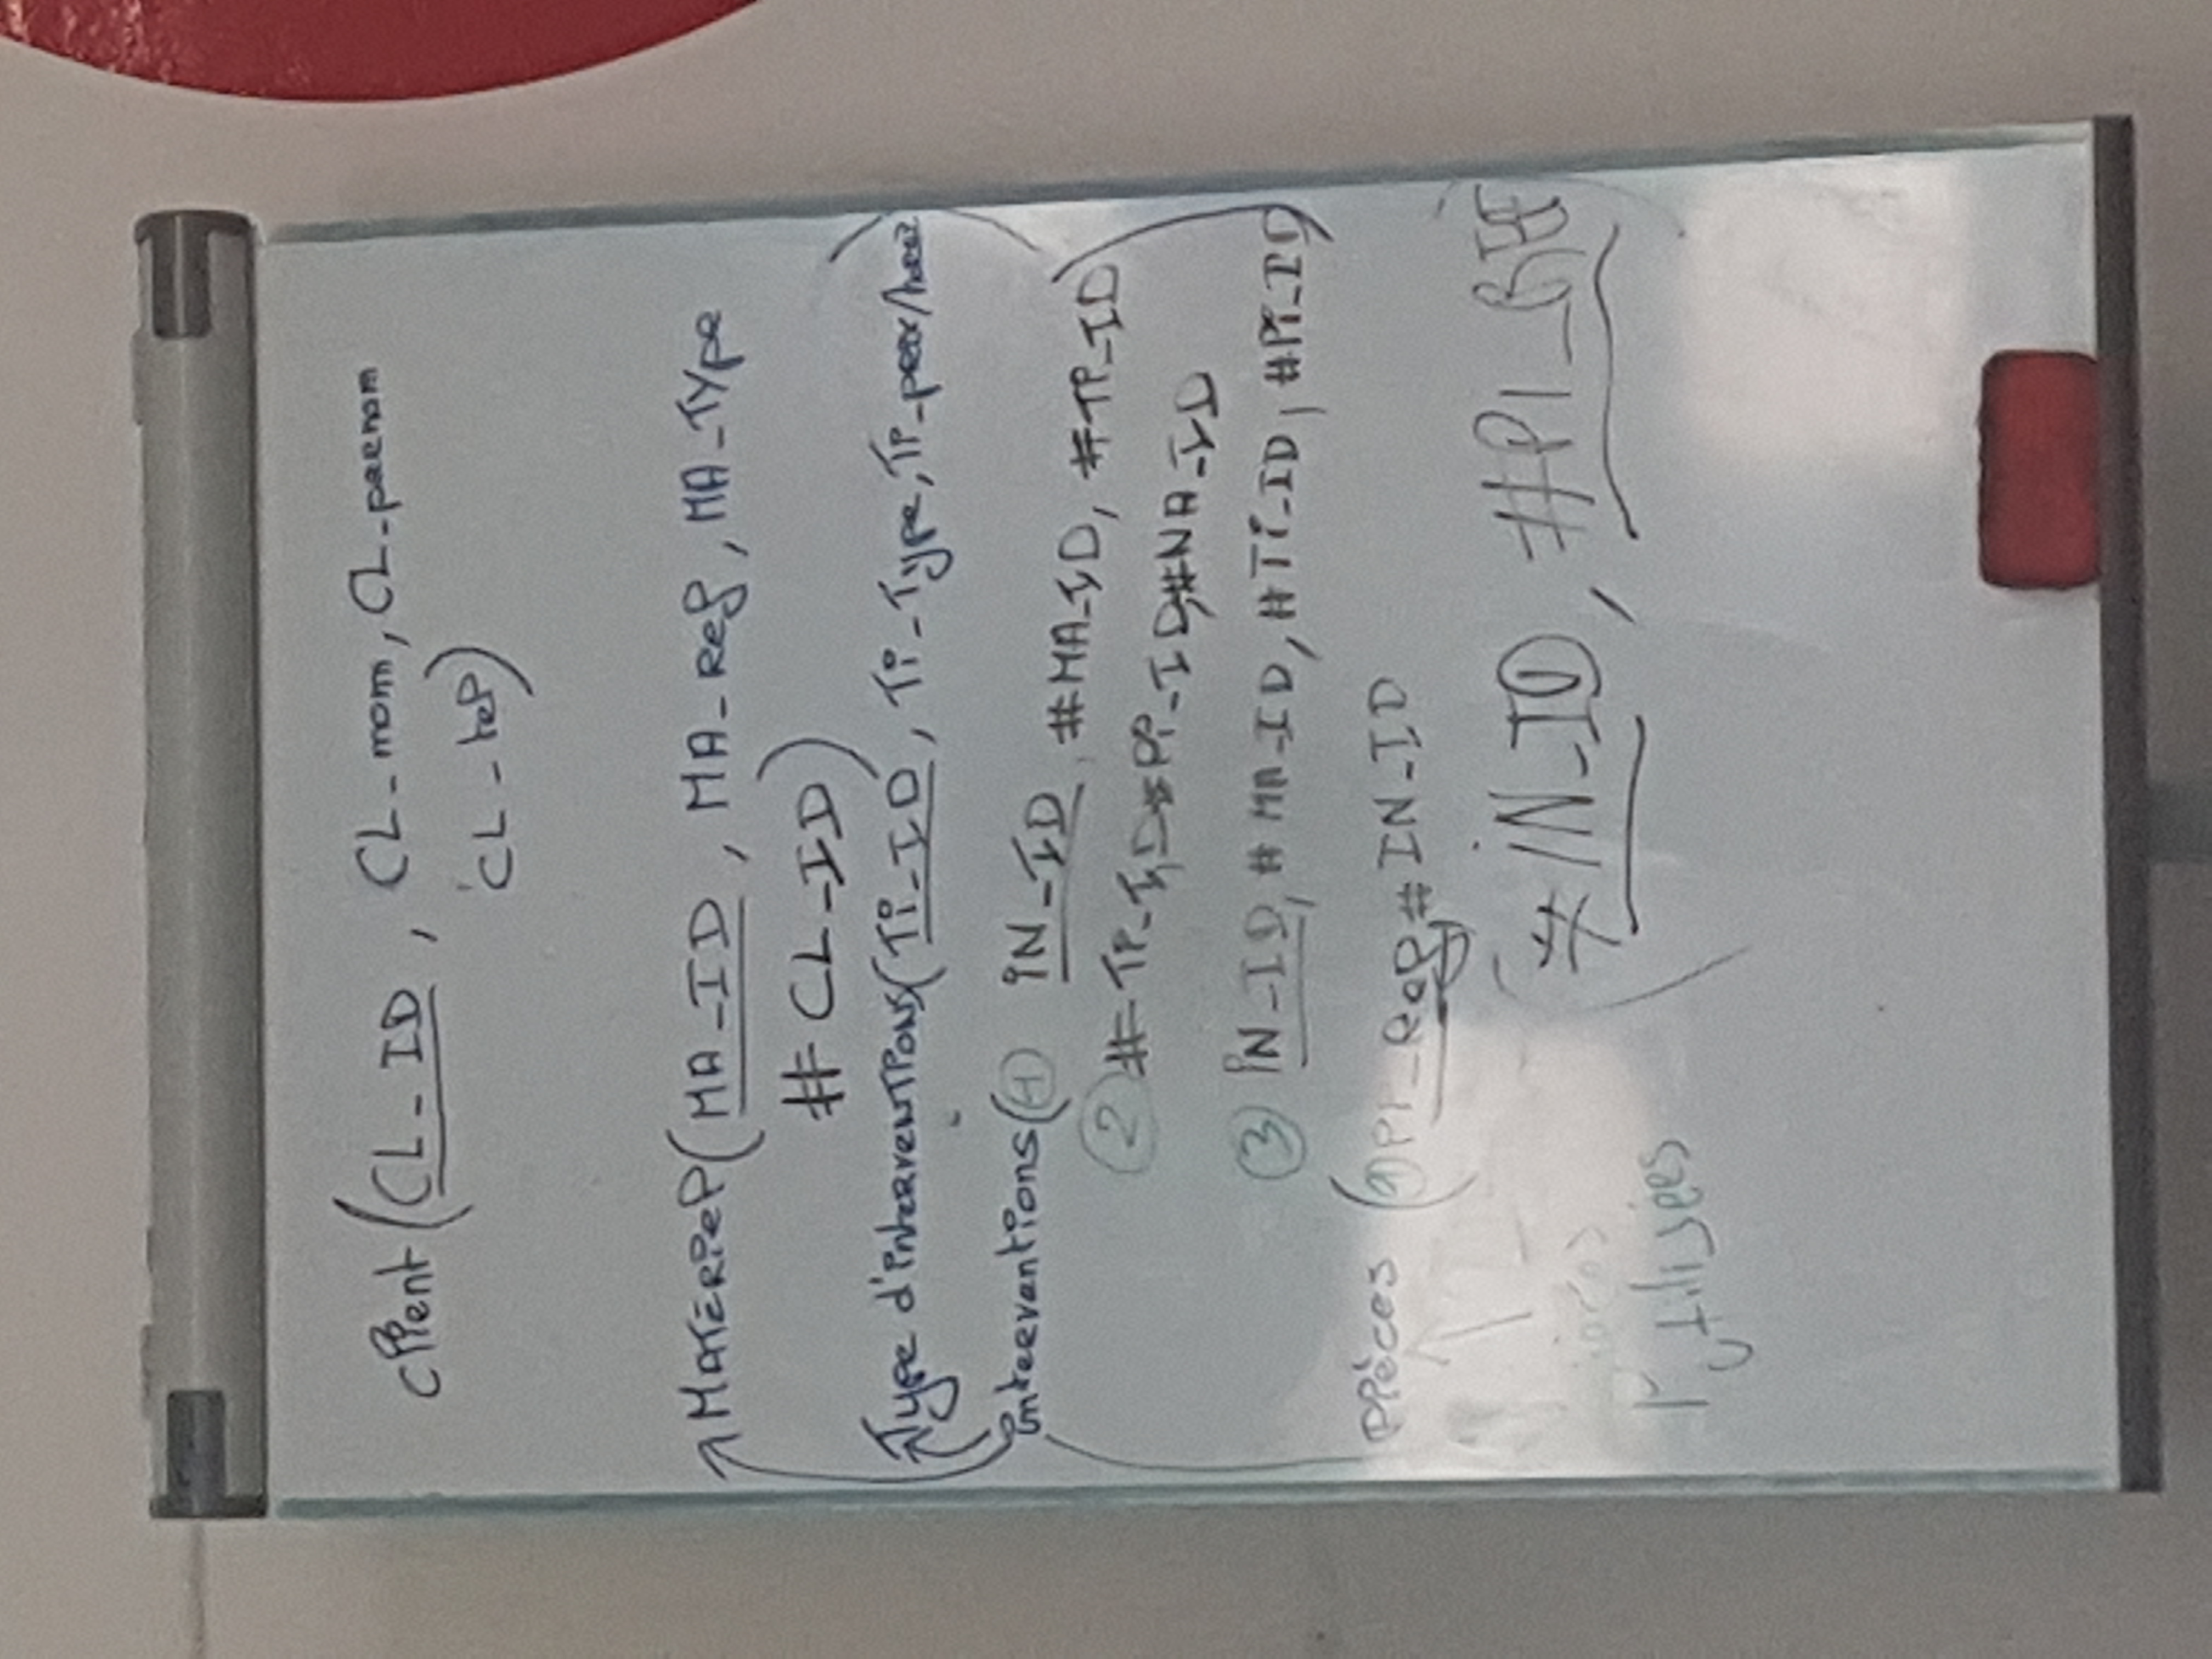 client (CL_ID, CL_nom, CL_prenom
CL_tel)
MATERiel (MA_ID, MA_Ref, MA_Type
# CL_ID)
Type d'interventions (Ti_ID, Ti_Type, Ti_prix/heure)
interventions (① iN_ID, #MA_ID, #Ti_ID
② # Ti_ID, #Pi_ID, #MA_ID
③ iN_ID, # MA_ID, #Ti_ID, #Pi_ID)
pièces (① Pi_Ref, # IN_ID
(#iN_ID, #PI_REF)
utilisées